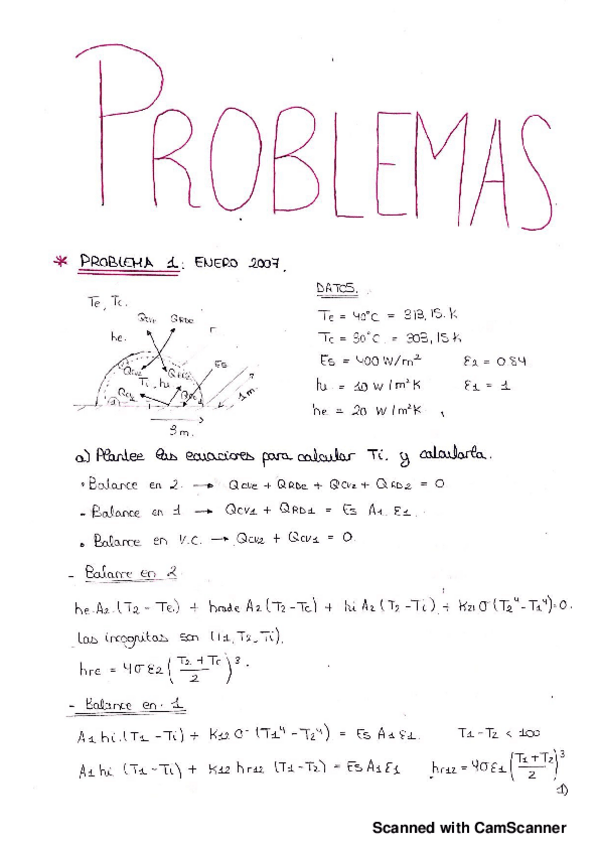 PROBLEMAS
* PROBLEMA 1: ENERO 2007.
DATOS.
Te, Tc.
QCVE QRDE
r
he.
ES
QCV2 QRD2
Ti, hi
QCV1 QRD1
1m.
3m.
Te = 40°C = 313,15 K
Tc = 30°C = 303,15K
Es = 400 W/m² ε2 = 084
hi = 10 W/m²K ε1 = 1
he = 20 W/m²K
a) Plantee las ecuaciones para calcular Ti. y calcularla.
• Balance en 2. → QCVE + QRDE + QCV2 + QRD2 = 0
- Balance en 1 → QCV1 + QRD1 = Es A1. ε1.
• Balance en V.C. → QCV2 + QCV1 = 0
- Balance en 2
he.A2.(T2 - Te) + hrade A2 (T2-Tc) + hi A2 (T2 - Ti) + K21 σ (T2⁴ - T1⁴)=0.
las incognitas son (T1, T2, Ti).
hre = 4σε2 (T2 + Tc / 2)³.
- Balance en. 1
A1 hi.(T1 - Ti) + K12 σ (T1⁴ - T2⁴) = Es A1 ε1. T1-T2 < 100
A1 hi (T1 - Ti) + K12 hr12 (T1 - T2) = Es A1 ε1 hr12 = 4σε1 (T1 + T2 / 2)³
1)
Scanned with CamScanner